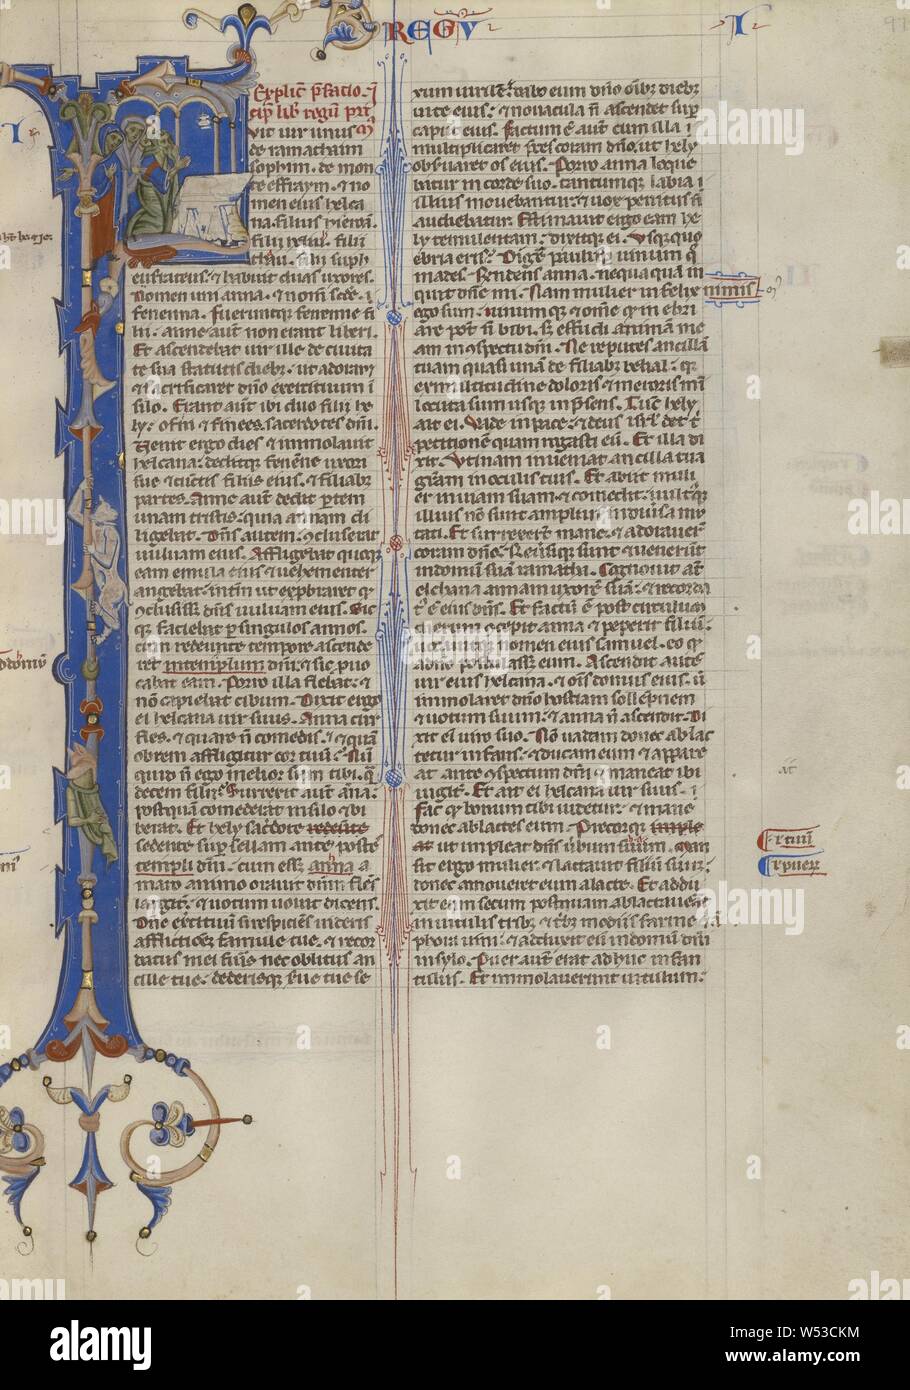 REGV
I
Explic̄ p̄facio · ī
cip̄ lib̄ regū pri
vit uir unus
de ramathaim
sophim · de mon
te effraym · ⁊ no
men eius helca
na · filius hieroā ·
filii heliu · filii
thau · filii suph
eufrateus · ⁊ habuit duas uxores ·
Nomen uni anna · ⁊ nom̄ sc̄de ·
fenenna · Fueruntque fenenne fi
lii · anne aut̄ non erant liberi ·
Et ascendebat uir ille de ciuita
te sua statutis dieb; · ut adoraret
⁊ sacrificaret dn̄o exercituum ī
silo · Erant aut̄ ibi duo filii he
ly · ofni ⁊ finees · sacerdotes dn̄i ·
Venit ergo dies ⁊ immolauit
helcana · deditque fenēne uxori
sue ⁊ cūctis filiis eius · ⁊ filiab;
partes · Anne aut̄ dedit p̄tem
unam tristis · quia annam di
ligebat · Dn̄s autem ꝯcluserat
uuluam eius · Affligebat quoqꝫ
eam emula eius ⁊ uehementer
angebat · intm̄ ut exp̄braret qꝫ
ꝯclusiss; dn̄s uuluam eius · Sic
qꝫ faciebat p̄ singulos annos ·
cum redeunte tempore ascende
ret in templum dn̄i · ⁊ sic p̄uo
cabat eam · Porro illa flebat · ⁊
nō capiebat cibum · Dixit ergo
ei helcana uir suus · Anna cur
fles · ⁊ quare n̄ comedis · ⁊ quā
obrem affligitur cor tuū · Nū
quid n̄ ego melior sum tibi · q̄
decem filii · Surrexit aut̄ āna ·
postquam comederat in silo ⁊ bi
berat · Et hely sac̄dote redeūte
sedente sup̄ sellam ante postes
templi dn̄i · cum ess; anna a
maro animo orauit dn̄m flēs
largit̄ · ⁊ uotum uouit dicens ·
Dn̄e ex̄cituū si respiciēs uideris
afflictionē famule tue · ⁊ recor
datus mei fu̅is nec oblitus an
cille tue · dederisque s̄ue tue se
xum uirilē · dabo eum dn̄o oīb; dieb;
uite eius · ⁊ nouacula n̄ ascendet sup̄
caput eius · Factum ē aut̄ cum illa
multiplicaret p̄ces coram dn̄o · ut hely
obseruaret os eius · Porro anna loque
batur in corde suo · tantumque labia i
illius mouebantur · ⁊ uox penitus n̄
audiebatur · Estimauit ergo eam he
ly temulentam · dixitque ei · Vsquequo
ebria eris · Digere paulisp̄ uinum q̄
mades · Rendens anna · nequaquam in
quit dn̄e mi · Nam mulier infelix nimis
ego sum · uinumque ⁊ om̄e qd̄ in ebri
are pot̄ n̄ bibi · s; effudi animam me
am in ꝯspectu dn̄i · Ne reputes ancillā
tuam quasi unā de filiab; belial · qꝫ
ex multitudine doloris ⁊ meroris mī
locuta sum usque in p̄sens · Tūc hely
ait ei · Vade in pace · ⁊ deus isrl̄ det t̄
petitionem quam rogasti eū · Et illa di
xit · Vtinam inueniat ancilla tua
gr̄am in oculis tuis · Et abiit muli
er in uiam suam · ⁊ comedit · uultusqꝫ
illius nō sunt amplius in diuisa mu
tati · Et surrexerūt mane · ⁊ adorauer̄t
coram dn̄o · Reūsique sunt ⁊ uenerūt
in domū suā ramatha · Cognouit aut̄
elchana annam uxorē suā · ⁊ recorda
t̄ ē eius dn̄s · Et factū ē post circulum
dierum ꝯcepit anna ⁊ peperit filiū ·
uocauitque nomen eius samuel · eo qd̄
a dn̄o postulass; eum · Ascendit autē
uir eius helcana · ⁊ oīs domus eius · ut
immolaret dn̄o hostiam sollēpnem
⁊ uotum suum · ⁊ anna n̄ ascendit · Di
xit eī uiro suo · Nō uadam donec ablac
tetur infans · ⁊ ducam eum ⁊ appare
at ante ꝯspectum dn̄i ⁊ maneat ibi
iugit̄ · Et ait ei helcana uir suus ·
Fac qd̄ bonum tibi uidetur · ⁊ mane
donec ablactes eum · Precorque imple
at ut impleat dn̄s ūbum suum · Man
sit ergo mulier · ⁊ lactauit filiū suū ·
donec amoueret eum a lacte · Et addu
xit eum secum postquam ablactauerat
in uitulis trib; · ⁊ trib; modiis farine · ⁊ ā
phora uini · ⁊ adduxit eū in domū dn̄i
in sylo · Puer aut̄ erat adhuc infan
tulus · Et immolauerunt uitulum ·
alamy
Image ID: W53CKM
www.alamy.com